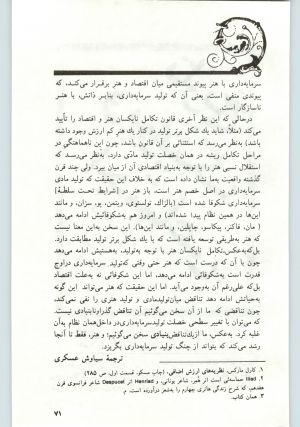 سرمایه‌داری با هنر پیوند مستقیمی میان اقتصاد و هنر برقرار می‌کند، که
پیوندی منفی است، یعنی آن که تولید سرمایه‌داری، بنابر ذاتش، با هنر
ناسازگار است.
درحالی که این نظر آخری قانون تکامل نایکسان هنر و اقتصاد را تأیید
می‌کند (مثلاً، شاید یك شكل برتر تولید در کنار یك هنر کم ارزش وجود داشته
باشد) به‌نظر می‌رسد که استثنائی بر آن قانون باشد، چون این ناهماهنگی در
مراحل تکامل ریشه در همان خصلت تولید مادّی دارد. به‌نظر می‌رسد که
استقلال نسبی هنر را با توجه به‌بنیاد اقتصادی آن از میان ببرد. ولی چند قرن
گذشته واقعیت به‌ما نشان داده است که به خلاف این حقیقت که تولید مادی
سرمایه‌داری در اصل خصم هنر است، باز هنر در [شرایط تحت سلطۀ]
سرمایه‌داری شکوفا شده است (بالزاک، تولستوی، ویتمن، پو، سزان، و مانند
این‌ها در همین نظام پیدا شده‌اند) و امروز هم به‌شکوفائیش ادامه می‌دهد
(مان، فاکنر، پیکاسو، چاپلین، و مانند این‌ها). این سخن به‌این معنا نیست
که هنر به‌طریقی توسعه یافته است که با یك شکل برتر تولید مطابقت دارد.
بل‌که به‌عکس، تکامل نایکسان هنر، با توجه به‌تولید، به‌هستیش ادامه می‌دهد
چون با آن که درست است که هنر حتی وقتی که تولید، سرمایه‌داری دراوج
قدرت است به‌شکوفائی ادامه می‌دهد، اما این شکوفائی نه به‌علت اقتصاد
بل‌که علی‌رغم آن به‌وجود می‌آید. اما این حقیقت که هنر می‌تواند این گونه
به‌حیاتش ادامه دهد تناقض میان تولیدمادی و تولید هنری را نفی نمی‌کند،
تناقضی که ما از آن سخن می‌گوئیم آن تناقض گذراوناپایدار نیست
که می‌توان با تغییر سطحی خصلت تولید سرمایه‌داری در داخل همان نظام به‌آن
غلبه کرد. به‌عکس، ما از یك تناقض بنیادی سخن می‌گوئیم؛ و هنر، فقط تا آنجا
رشد می‌کند که بتواند از چنگ تولید سرمایه‌داری بگریزد.
ترجمۀ سیاوش عسکری
۱. کارل مارکس. نظریه‌های ارزش اضافی، (چاپ مسکو، قسمت اول، ص ۲۸۵)
۲. Iliad حماسه‌ئی است از هُمر، شاعر یونانی، و Henriad اثر Despucel شاعر فرانسوی قرن
هفدهم، که شرح زندگی هانری چهارم را به‌شعر درآورده است. م.
۳. همان کتاب.
۷۱